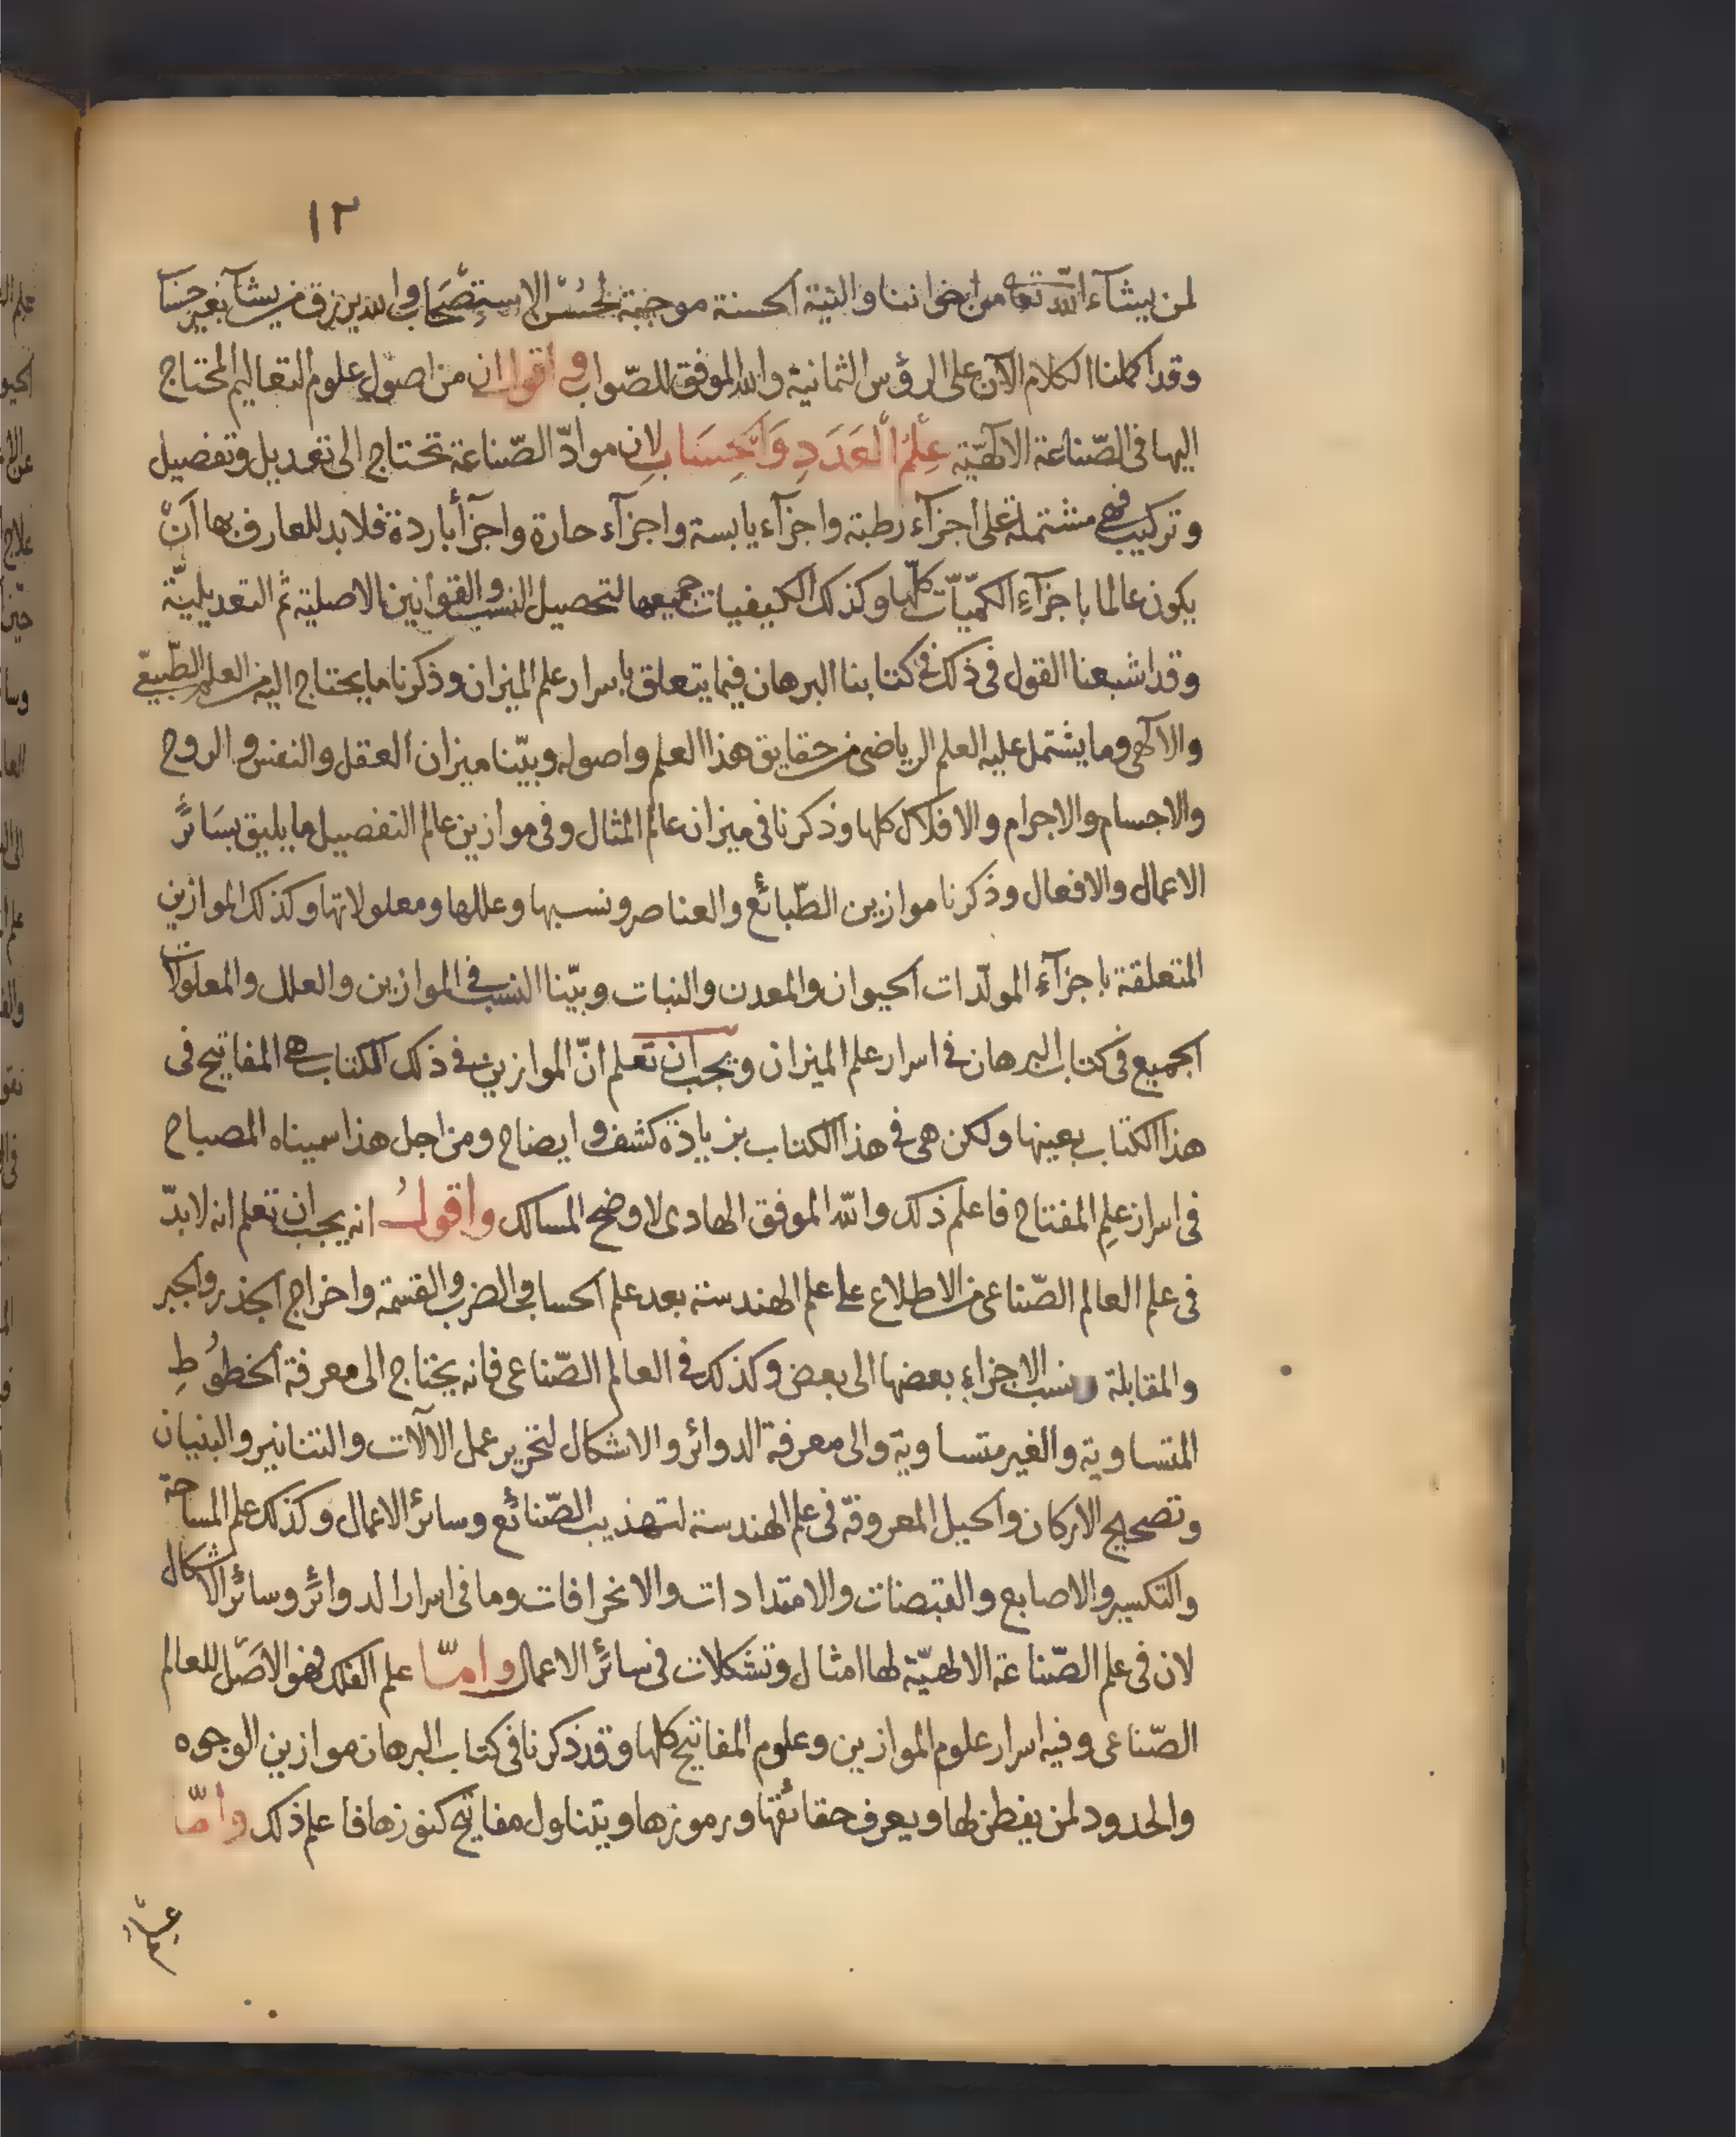 ١٢
لمن يشآء الله تعالى من اخواننا والنية الحسنة موجبة لحُسْن الاستصحاب والله يرزق من يشآ بغير حسا
وقد اكملنا الكلام الآن على الرؤس الثمانية والله الموفق للصّواب واقول ان من اصول علوم التعاليم المحتاج
اليها فى الصّناعة الالٓهيّة عِلْمُ الْعَدَدِ وَالْحِسَابِ لان موادّ الصّناعة تحتاج الى تعديل وتفصيل
وتركيب فهى مشتملة على اجزآء رطبة واجزآء يابسة واجزآء حارة واجزآ باردة فلابد للعارف بها اَنْ
يكون عالما باجزآءِ الكمّيّات كلّها وكذلك الكيفيات جميعها لتحصيل النسب والقوانين الاصلية ثم التعديليّة
وقد اشبعنا القول فى ذلك فى كتابنا البرهان فيما يتعلق باسرار علم الميزان وذكرنا ما يحتاج اليه من العلم الطّبيعى
والالٓهى وما يشتمل عليه العلم الرياضى من حقايق هذا العلم واصوله وبيّنا ميزان العقل والنفس والروح
والاجسام والاجرام والافلاك كلها وذكرنا فى ميزان عالم المثال وفى موازين عالم التفصيل ما يليق بسَائرِ
الاعمال والافعال وذكرنا موازين الطّبائع والعناصر ونسبها وعللها ومعلولاتها وكذلك الموازين
المتعلقة باجزآء المولّدات الحيوان والمعدن والنبات وبيّنا النسب فى الموازين والعلل والمعلولات
الجميع فى كتاب البرهان فى اسرار علم الميزان ويجب ان تعلم انّ الموازين فى ذلك الكتاب هى المفاتيح فى
هذا الكتاب بعينها ولكن هى فى هذا الكتاب بزيادة كشف وايضاح ومن اجل هذا سميناه المصباح
فى اسرار علمِ المفتاح فاعلم ذلك والله الموفق الهادى لاوضح المسالك واقولُ انه يجب ان تعلم انه لابدّ
فى علم العالم الصّناعى من الاطلاع على علم الهندسة بعد علم الحساب فى الضرب والقسمة واخراج الجذر والجبر
والمقابلة ونسب الاجزاءِ بعضها الى بعض وكذلك فى العالم الصّناعى فانه يحتاج الى معرفة الخطوُطِ
المتساوية والغير متساوية والى معرفة الدوائر والاشكال لتحرير عمل الآلات والتنانير والبنيان
وتصحيح الاركان والحيل المعروفة فى علم الهندسة لتهذيب الصّنائع وسائر الاعمال وكذلك علم المساحة
والتكسير والاصابع والقبضات والامتدادات والانحرافات وما فى اسرار الدوائر وسائر الاشكال
لان فى علم الصّناعة الالهيّة لها امثال وتشكلات فى سائر الاعمال وامّا علم الفلك فهو الاصل للعالم
الصّناعى وفيه اسرار علوم الموازين وعلوم المفاتيح كلها وقد ذكرنا فى كتاب البرهان موازين الوجوه
والحدود لمن يفطن لها ويعرف حقائقها ورموزها ويتناول مفاتيح كنوزها فاعلم ذلك وامّا